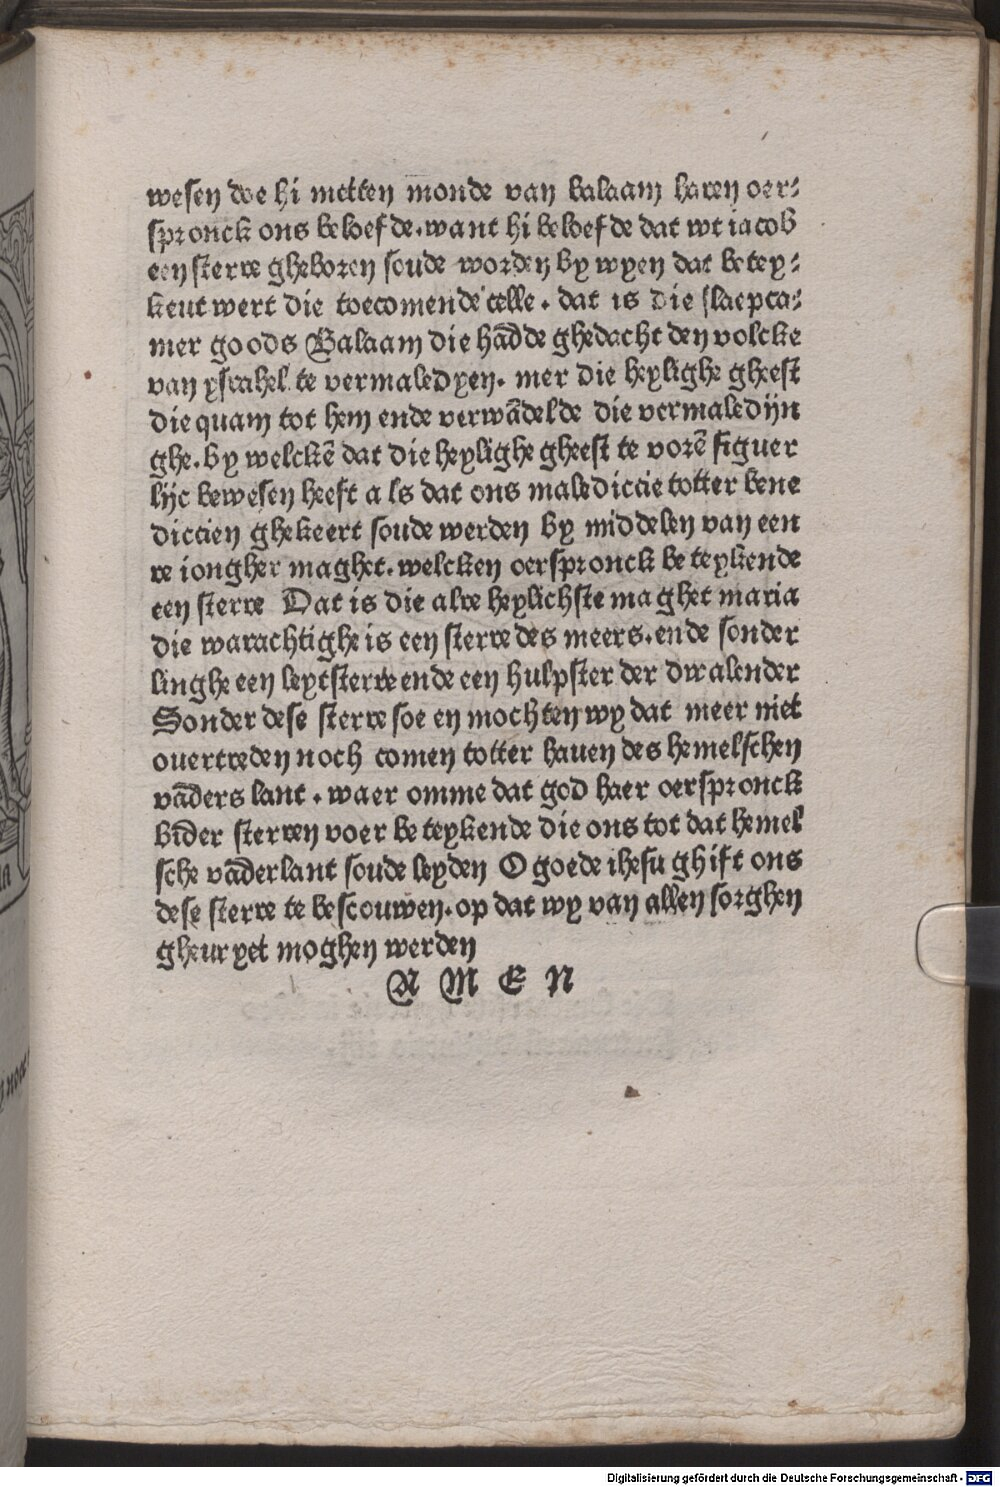 wesen doe hi metten monde van balaam haren oer⸗
spronck ons beloefde. want hi beloefde dat wt iacob
een sterre gheboren soude worden by wyen dat betey⸗
kent wert die toecomende celle. dat is die slaepca⸗
mer goods Balaam die hādde ghedacht den volcke
van ysrahel te vermaledyen. mer die heylighe gheest
die quam tot hem ende verwādelde die vermaledijn
ghe. by welckē dat die heylighe gheest te vorē figuer
lijc bewesen heeft als dat ons malediccie totter bene
diccien ghekeert soude werden by middelen van een
re iongher maghet. welcken oerspronck beteykende
een sterre Dat is die alre heylichste maghet maria
die warachtighe is een sterre des meers. ende sonder
linghe een leytsterre ende een hulpster der dwalender
Sonder dese sterre soe en mochten wy dat meer niet
ouertreden noch comen totter hauen des hemelschen
vāders lant. waer omme dat god haer oerspronck
bider sterren voer beteykende die ons tot dat hemel
sche vāderlant soude leyden O goede ihesu ghift ons
dese sterre te bescouwen. op dat wy van allen sorghen
gheuryet moghen werden
A M E N
Digitalisierung gefördert durch die Deutsche Forschungsgemeinschaft - DFG